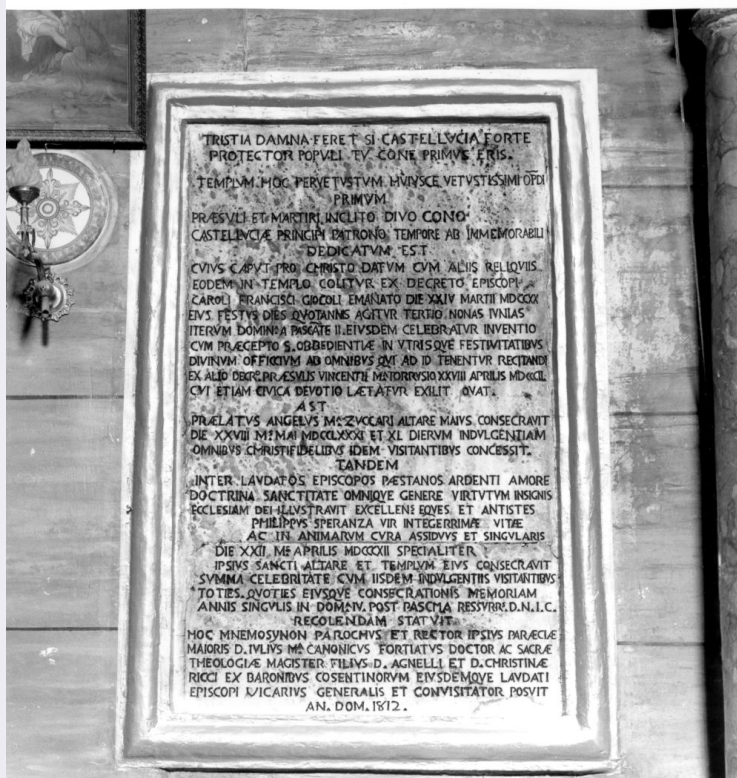 TRISTIA DAMNA FERET SI CASTELLVCIA FORTE
PROTECTOR POPVLI TV CONE PRIMVS ERIS.
TEMPLVM HOC PERVETVSTVM HVIVSCE VETVSTISSIMI OPDI
PRIMVM
PRÆSVLI ET MARTIRI INCLITO DIVO CONO
CASTELLVCIÆ PRINCIPI PATRONO TEMPORE AB IMMEMORABILI
DEDICATVM EST
CVIVS CAPVT PRO CHRISTO DATVM CVM ALIIS RELIQVIIS
EODEM IN TEMPLO COLITVR EX DECRETO EPISCOPI
CAROLI FRANCISCI GIOCOLI EMANATO DIE XXIV MARTII MDCCXX
EIVS FESTVS DIES QVOTANNIS AGITVR TERTIO NONAS IVNIAS
ITERVM DOMIN:A PASCATE II EIVSDEM CELEBRATVR INVENTIO
CVM PRÆCEPTO S. OBBEDIENTIÆ IN VTRISQVE FESTIVITATIBVS
DIVINVM OFFICIVM AB OMNIBVS QVI AD ID TENENTVR RECITANDI
EX ALIO DECR. PRÆSVLIS VINCENTII M. TORRVSIO XXVIII APRILIS MDCCIL
CVI ETIAM CIVICA DEVOTIO LÆTATVR EXILIT OVAT.
AST
PRÆLATVS ANGELVS M. ZVCCARI ALTARE MAIVS CONSECRAVIT
DIE XXVIII M. MAI MDCCLXXXI ET XL DIERVM INDVLGENTIAM
OMNIBVS CHRISTIFIDELIBVS IDEM VISITANTIBVS CONCESSIT.
TANDEM
INTER LAVDATOS EPISCOPOS PÆSTANOS ARDENTI AMORE
DOCTRINA SANCTITATE OMNIQVE GENERE VIRTVTVM INSIGNIS
ECCLESIAM DEI ILLVSTRAVIT EXCELLENS EQVES ET ANTISTES
PHILIPPVS SPERANZA VIR INTEGERRIMÆ VITÆ
AC IN ANIMARVM CVRA ASSIDVVS ET SINGVLARIS
DIE XXII M. APRILIS MDCCCXII SPECIALITER
IPSIVS SANCTI ALTARE ET TEMPLVM EIVS CONSECRAVIT
SVMMA CELEBRITATE CVM IISDEM INDVLGENTIIS VISITANTIBVS
TOTIES. QVOTIES EIVSQVE CONSECRATIONIS MEMORIAM
ANNIS SINGVLIS IN DOM. IV. POST PASCHA RESVRR. D.N.I.C.
RECOLENDAM STATVIT.
HOC MNEMOSYNON PAROCHVS ET RECTOR IPSIVS PARÆCIÆ
MAIORIS D. IVLIVS M. CANONICVS FORTIATVS DOCTOR AC SACRÆ
THEOLOGIÆ MAGISTER FILIVS D. AGNELLI ET D. CHRISTINÆ
RICCI EX BARONIBVS COSENTINORVM EIVSDEMQVE LAVDATI
EPISCOPI VICARIVS GENERALIS ET CONVISITATOR POSVIT
AN. DOM. 1812.